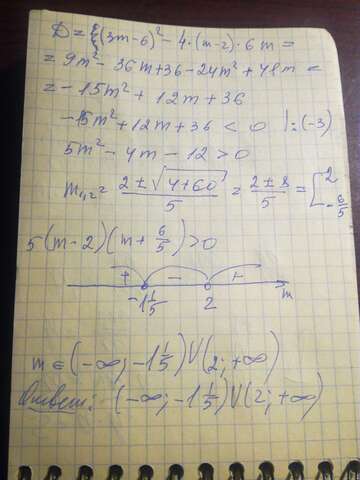 D = (3m-6)² - 4·(m-2)·6m =
= 9m² - 36m + 36 - 24m² + 48m =
= -15m² + 12m + 36
-15m² + 12m + 36 < 0 |:(-3)
5m² - 4m - 12 > 0
m₁,₂ = (2 ± √(4+60))/5 = (2 ± 8)/5 = [2; -6/5
5(m-2)(m + 6/5) > 0
+ - +
-1 1/5 2 m
m ∈ (-∞; -1 1/5) ∪ (2; +∞)
Ответ: (-∞; -1 1/5) ∪ (2; +∞)